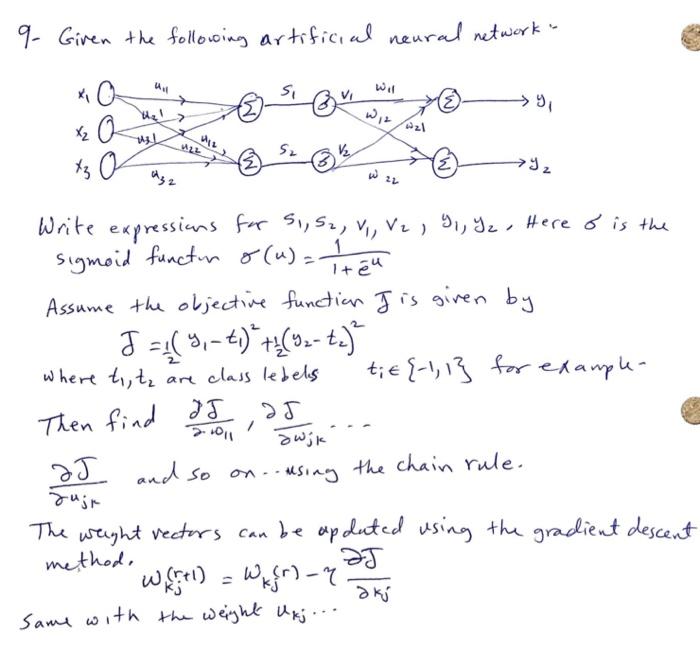 9- Given the following artificial neural network:-
x₁ u₁₁ S₁ V₁ w₁₁ y₁
Σ σ Σ
u₂₁ w₁₂ w₂₁
x₂ u₃₁ u₂₂ u₁₂
x₃ u₃₂ Σ S₂ σ V₂ w₂₂ Σ y₂
Write expressions for S₁, S₂, V₁, V₂, y₁, y₂. Here σ is the
sigmoid function σ(u) = 1/(1+e^-u)
Assume the objective function J is given by
J = ½(y₁-t₁)² + ½(y₂-t₂)²
where t₁, t₂ are class lebels tᵢ∈{-1,1} for example-
Then find ∂J/∂w₁₁, ∂J/∂wjk ...
∂J/∂ujk and so on... using the chain rule.
The weight vectors can be updated using the gradient descent
method.
wkj(r+1) = wkj(r) - η ∂J/∂kj
Same with the weight ukj...